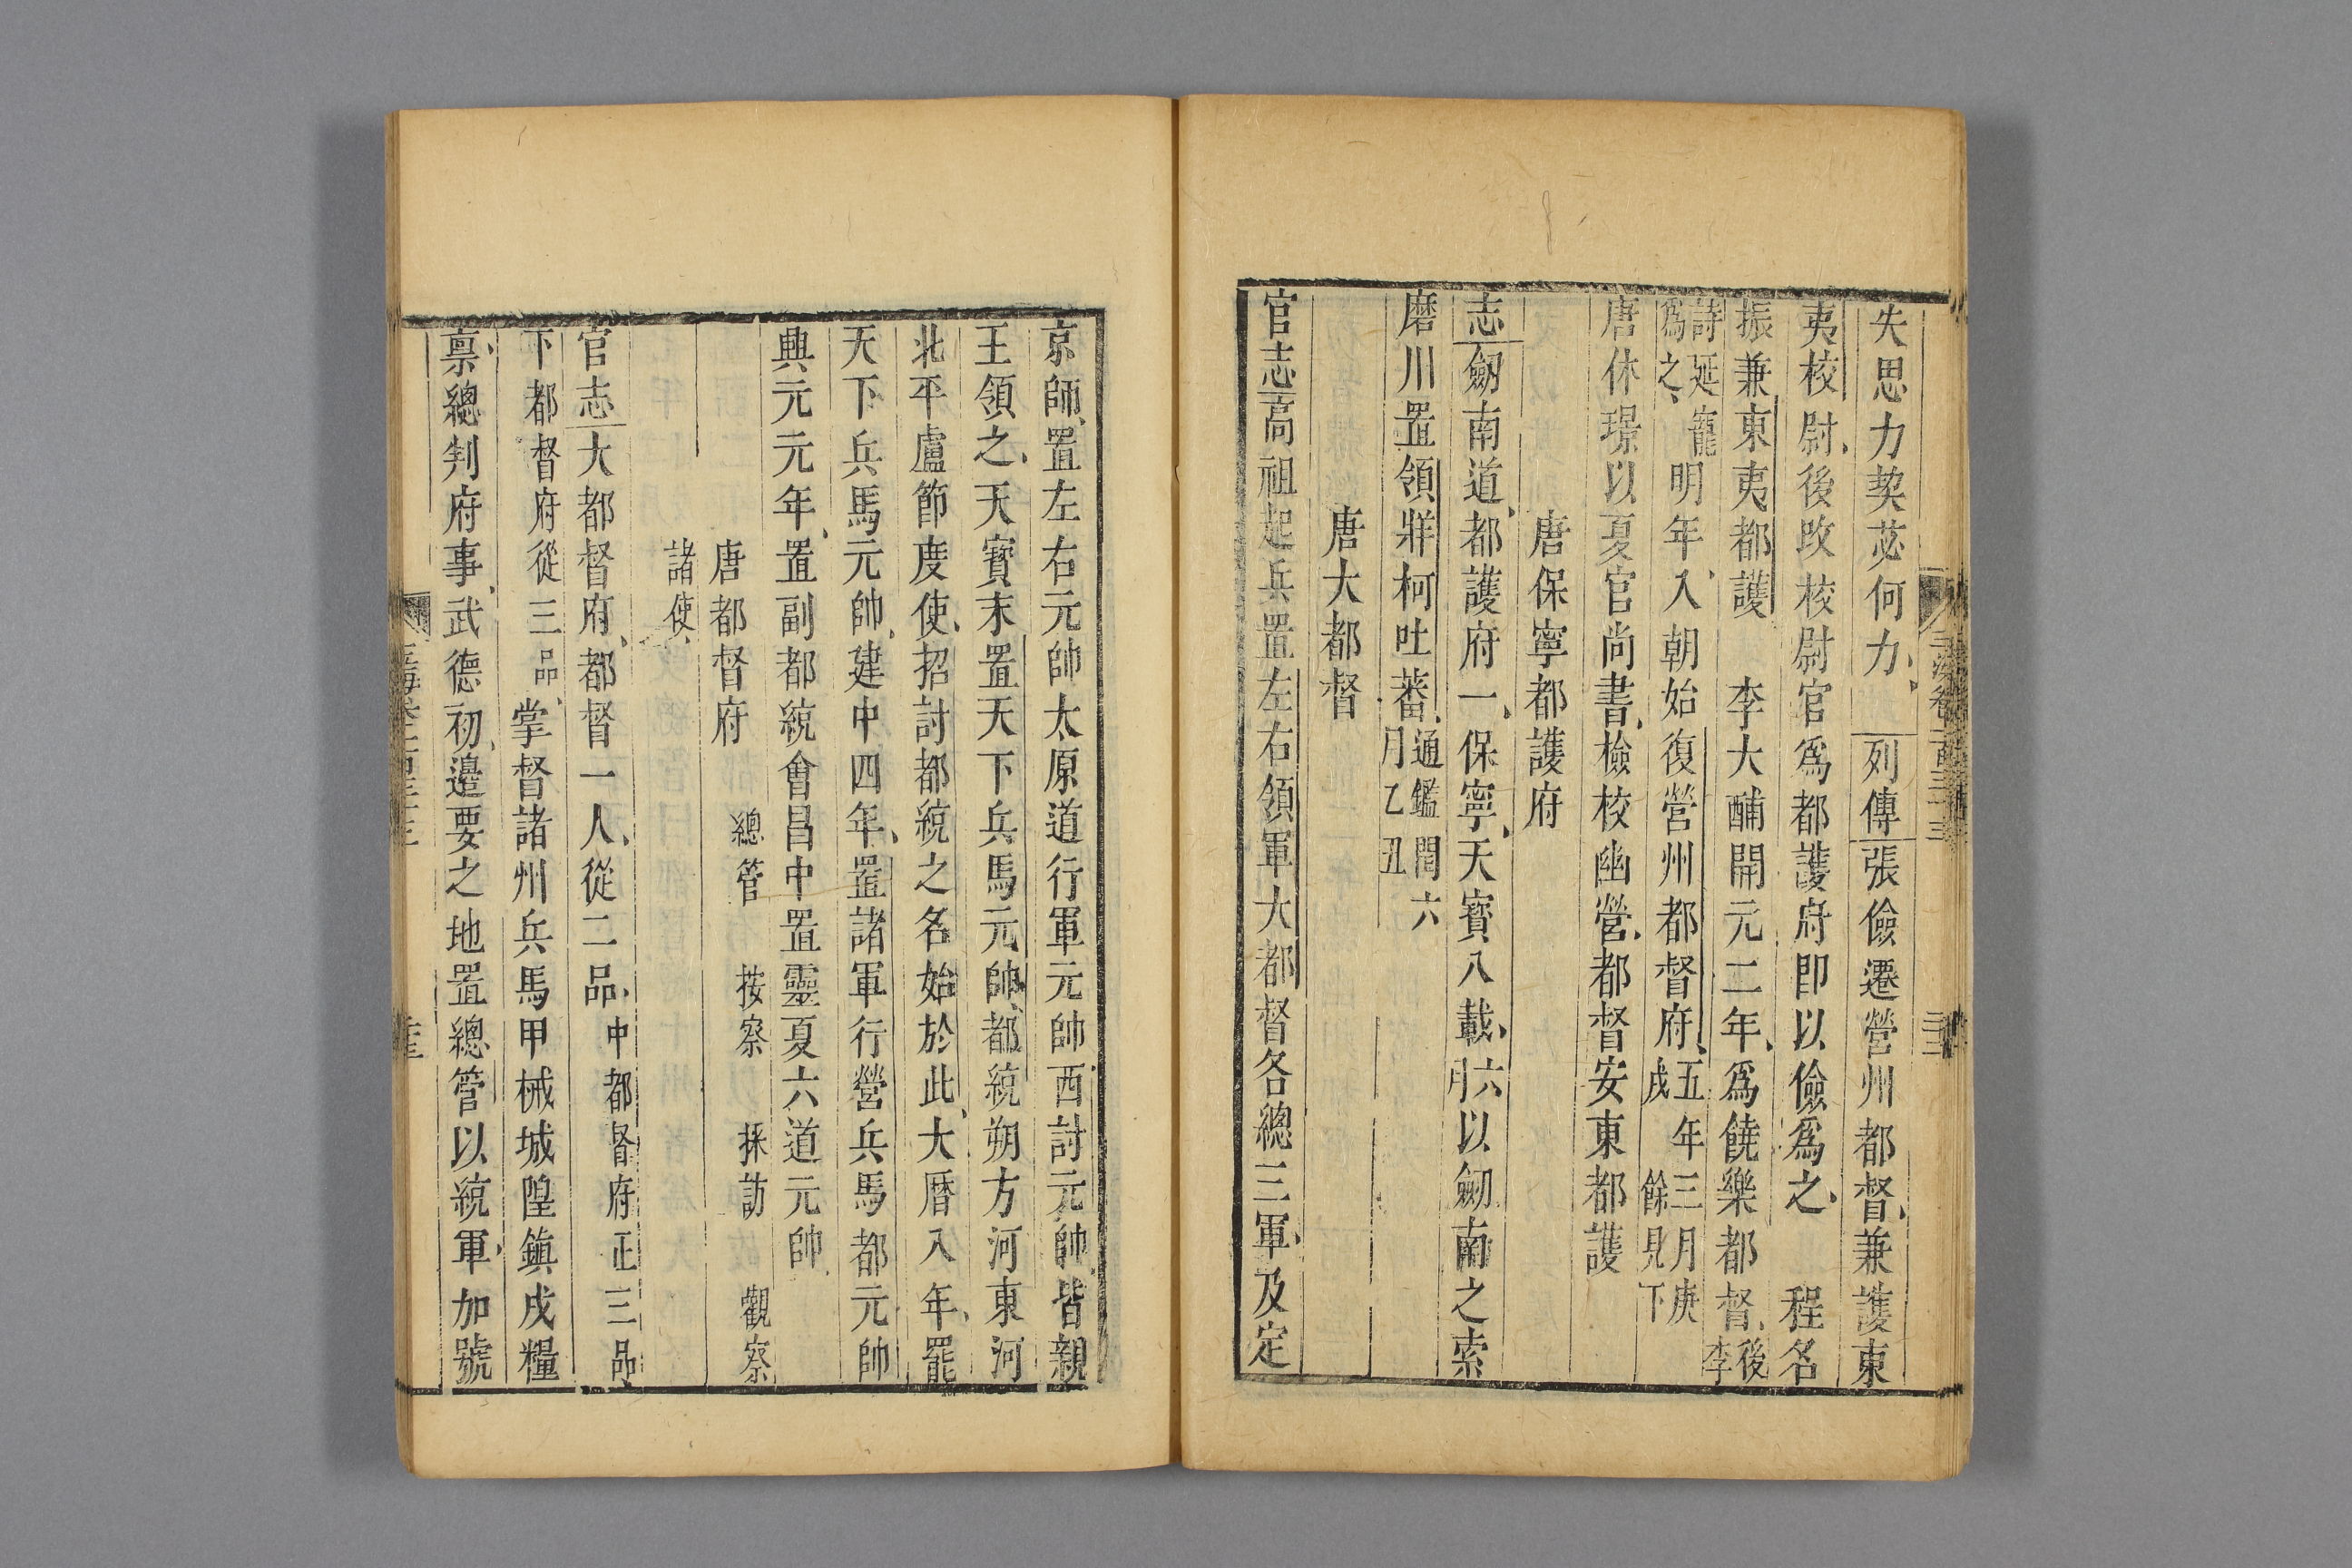 失思力契苾何力列傳張儉遷營州都督兼護東
夷校尉後改校尉官爲都護府即以儉爲之程名
振兼東夷都護李大酺開元二年爲饒樂都督後李
詩延寵爲之明年入朝始復營州都督府五年三月庚戌餘見下
唐休璟以夏官尚書檢校幽營都督安東都護
唐保寧都護府
志劒南道都護府一保寧天寶八載六月以劒南之索
磨川置領牂柯吐蕃通鑑閏六月乙丑
唐大都督
官志高祖起兵置左右領軍大都督各總三軍及定
京師置左右元帥太原道行軍元帥西討元帥皆親
王領之天寶末置天下兵馬元帥都統朔方河東河
北平盧節度使招討都統之名始於此大曆八年罷
天下兵馬元帥建中四年置諸軍行營兵馬都元帥
興元元年置副都統會昌中置靈夏六道元帥
唐都督府 總管 按察 採訪 觀察
諸使
官志大都督府都督一人從二品中都督府正三品
下都督府從三品掌督諸州兵馬甲械城隍鎮戍糧
禀總判府事武德初邊要之地置總管以統軍加號